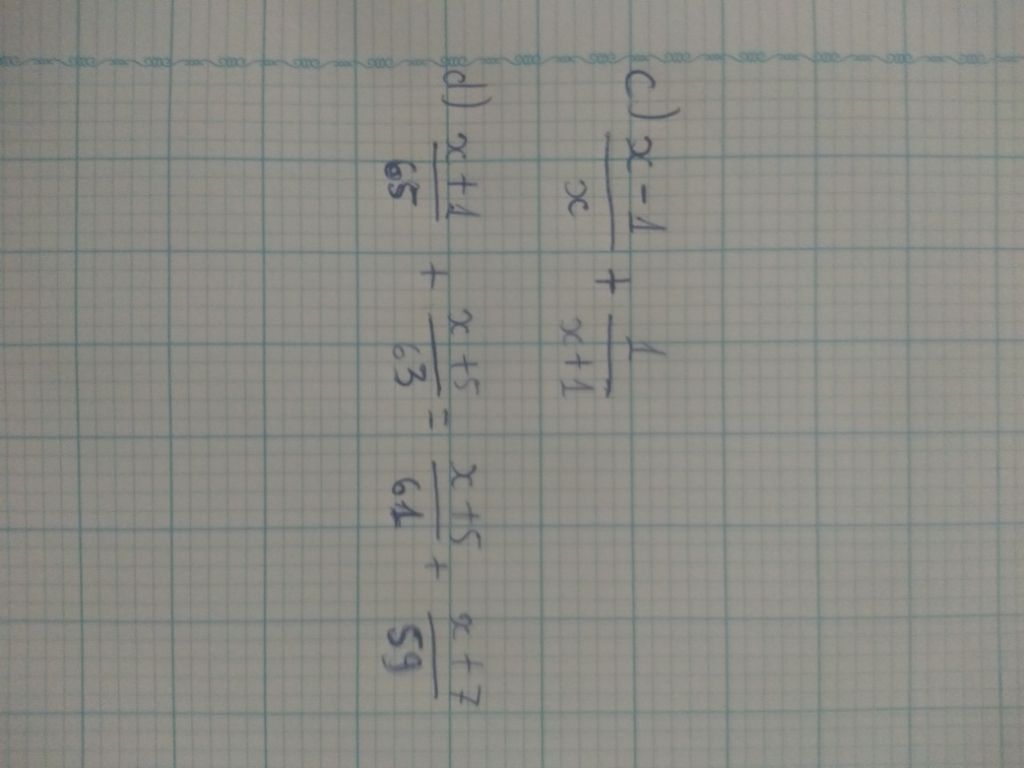 c) x-1/x + 1/x+1
d) x+1/65 + x+5/63 = x+5/61 + x+7/59